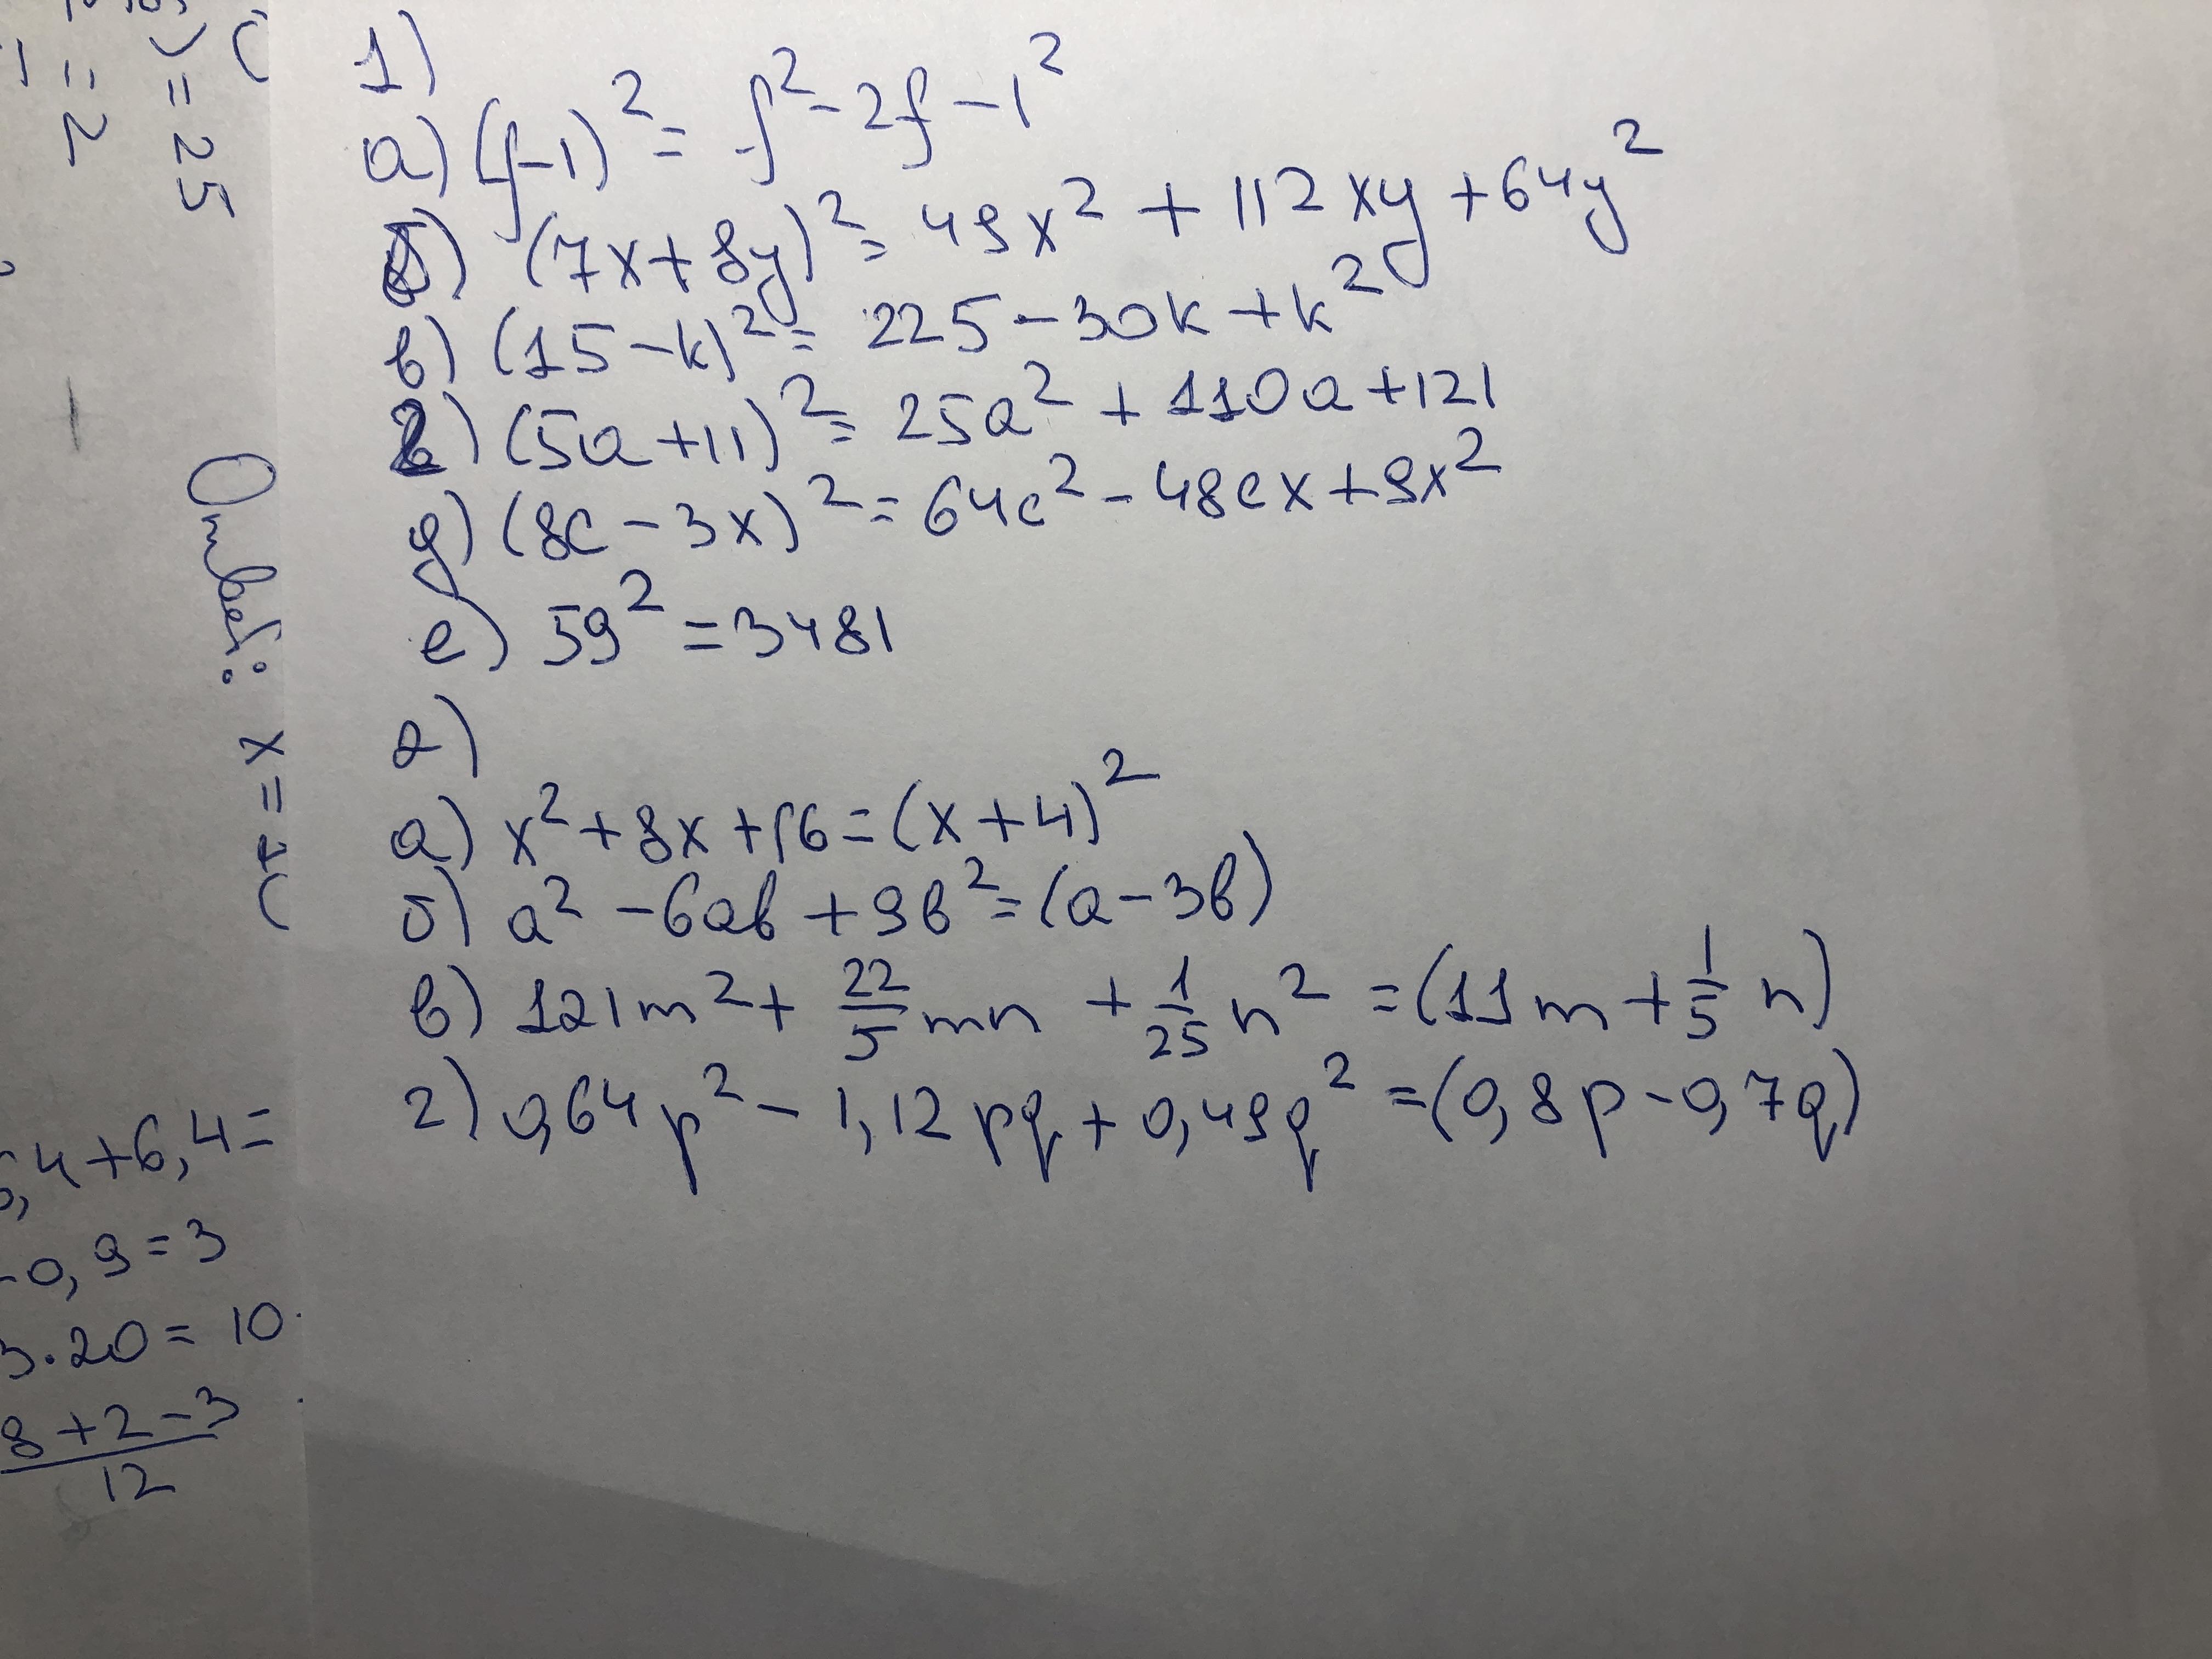 1)
а) (f-1)² = f² - 2f - 1²
б) (7x+8y)² = 49x² + 112xy + 64y²
в) (15-k)² = 225 - 30k + k²
г) (5a+11)² = 25a² + 110a + 121
д) (8c-3x)² = 64c² - 48cx + 9x²
е) 59² = 3481
2)
а) x² + 8x + 16 = (x+4)²
б) a² - 6ab + 9b² = (a-3b)
в) 121m² + 22/5 mn + 1/25 n² = (11m + 1/5 n)
г) 0,64p² - 1,12pq + 0,49q² = (0,8p - 0,7q)
) = 25
= 2
Ответ: x =
,4+6,4=
-0,9=3
3·20=10
8+2-3
12